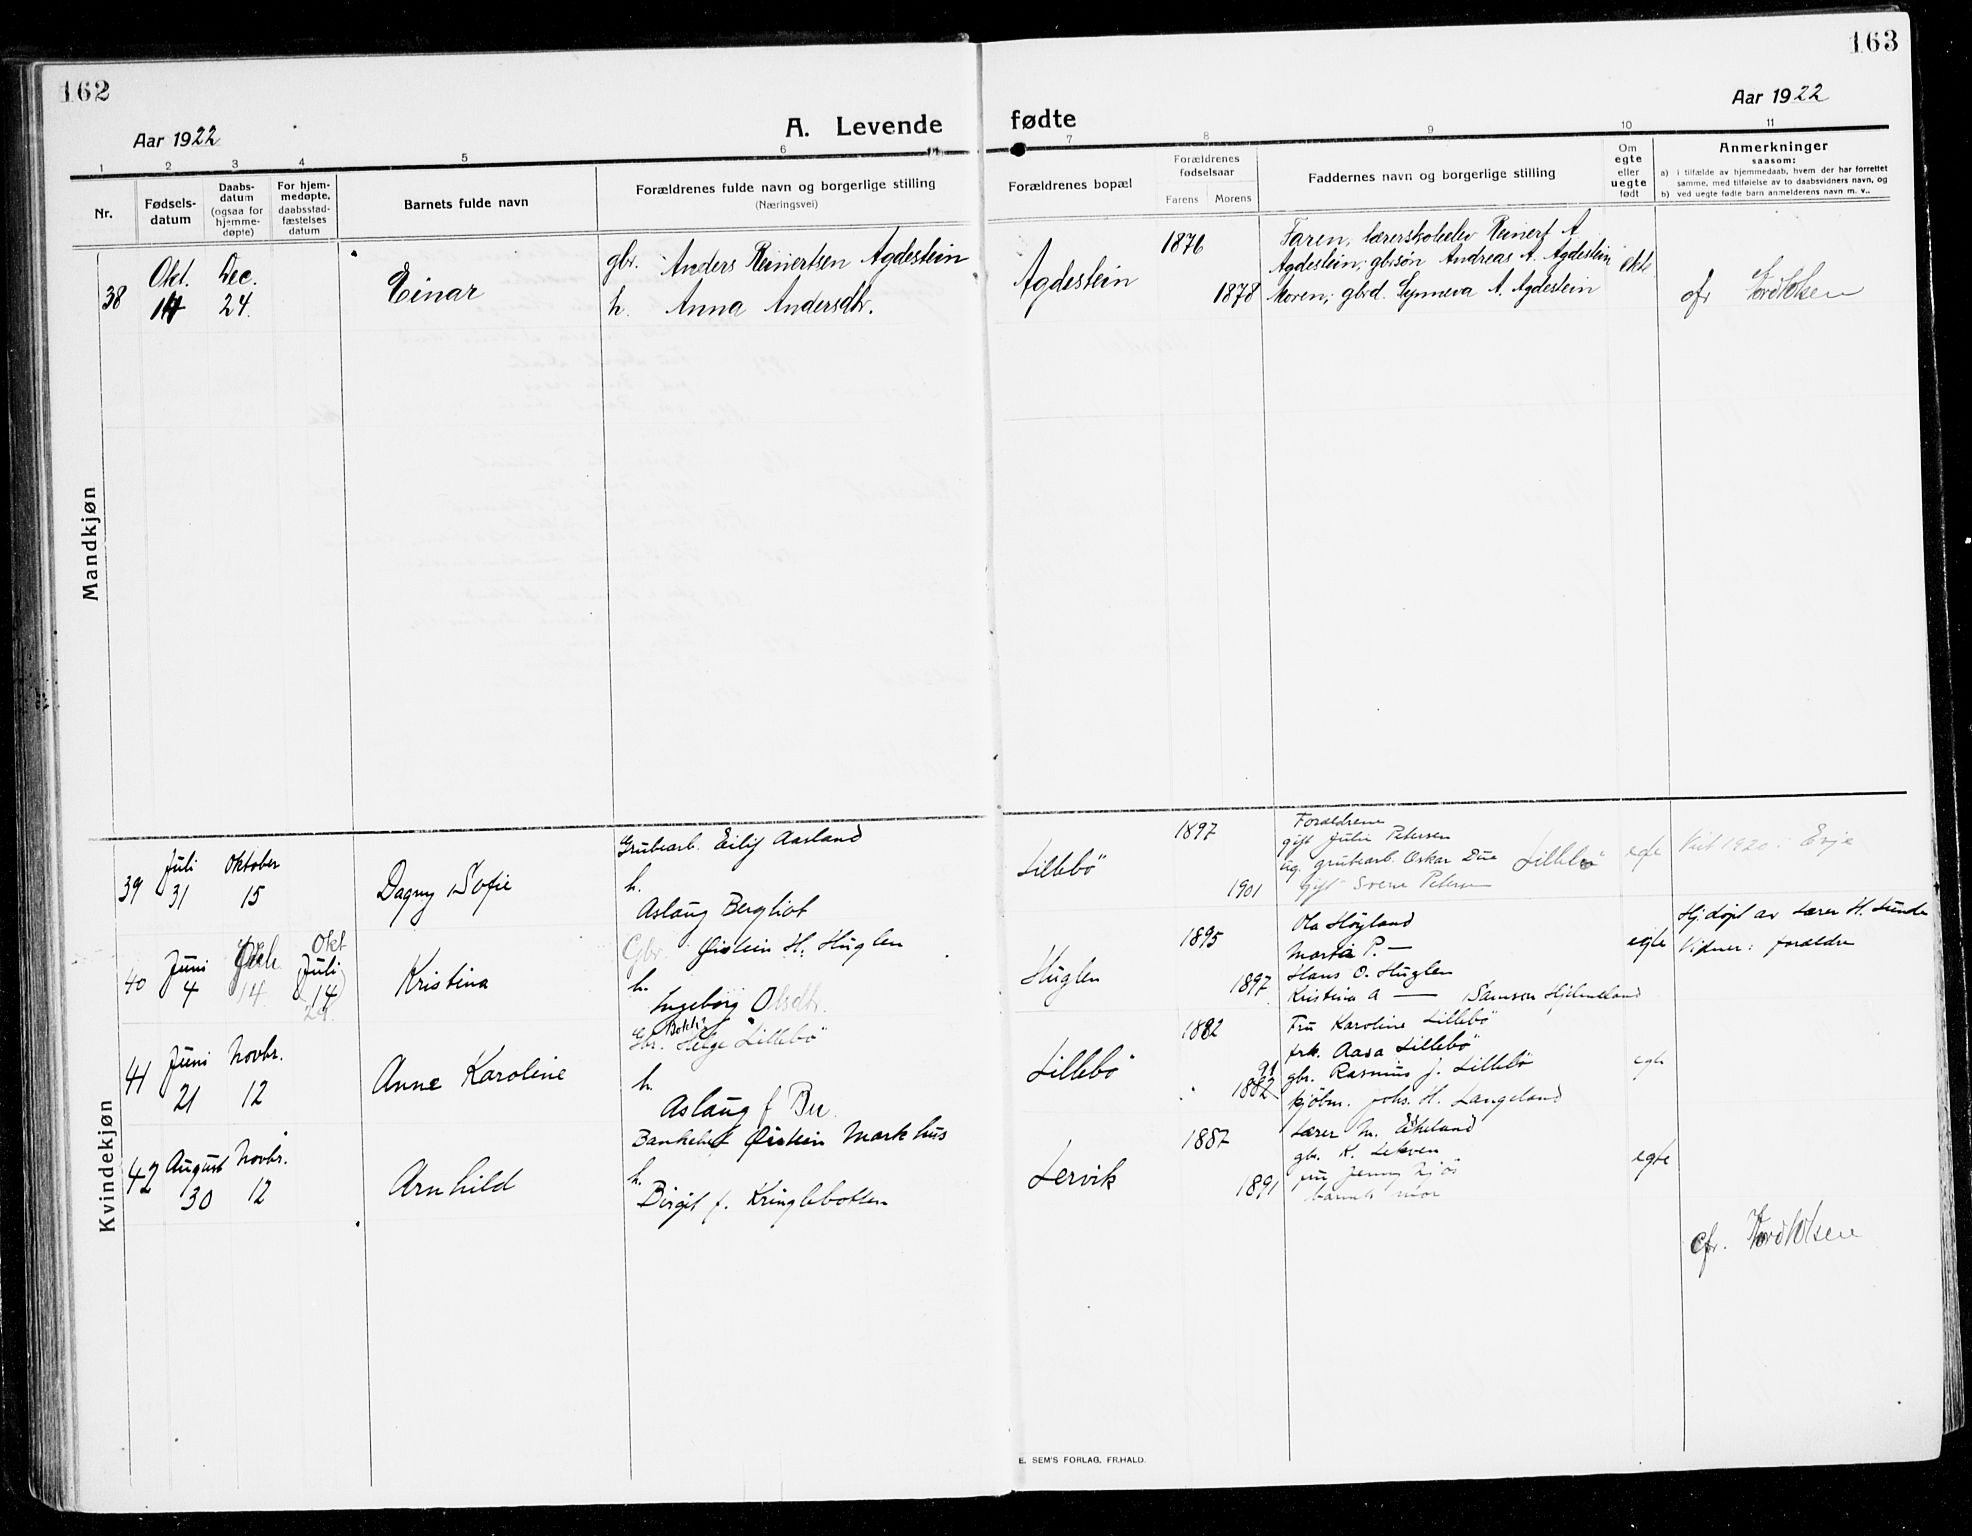 162
163
Aar 1922
A. Levende fødte
Aar 1922
1 2 3 4 5 6 7 8 9 10 11
Nr.
Fødsels-
datum
Daabs-
datum
(ogsaa for
hjemme-
døpte)
For hjem-
medøpte,
daabsstad-
fæstelses
datum
Barnets fulde navn
Forældrenes fulde navn og borgerlige stilling
(Næringsvei)
Forældrenes bopæl
Forældrenes
fødselsaar
Farens Morens
Faddernes navn og borgerlige stilling
Om
egte
eller
uegte
født
Anmerkninger
saasom:
a) i tilfælde av hjemmedaab, hvem der har forrettet
samme, med tilføielse av to daabsvidners navn, og
b) ved uegte fødte barn anmelderens navn m. v..
Mandkjøn
38
Okt.
14
Dec.
24
Einar
gbr. Anders Reinertsen Agdestein
h. Anna Andersdtr.
Agdestein
1876
1878
Faren, lærerskoleelev Reinert A.
Agdestein, gbrsøn Andreas A. Agdestein
Moren, gbrd. Synneva A. Agdestein
ekte
cfr
Kvindekjøn
39
Juli
31
Oktober
15
Dagny Sofie
Grubearb. Eilif Aasland
h.
Aslaug Bergliot
Lillebö
1897
1901
Forældrene
gift Julie Petersen
ug. grubearb. Oskar Due Lillebö
gift Petersen
egte
1920: Evje
40
Juni
4
14
Okt
Juli
14
29.
Kristina
Gbr. Øistein H. Huglen
h.
Ingebörg Olsdtr.
Huglen
1895
1897
Ola Høyland
Marta P. —
Hans O. Huglen
Kristina A — Samson Hjelmeland
egte
Hj.døpt av Lærer H. Sunde
Vidner: forældre
41
Juni
21
Novbr.
12
Anne Karoline
Gbr. Helge Lillebö
h.
Aslaug f. Bu
Lillebö
1882
91
1882
Fru Karoline Lillebö
frk. Aasa Lillebö
gbr. Rasmus J. Lillebö
kjöbm. Johs. H. Langeland
egte
42
August
30
Novbr.
12
Arnhild
Øistein Markhus
h.
Birgit f. Kringlebotten
Lervik
1887
1891
Lærer M. Økeland
gbr. K. Lekven
fru Jenny
barnets mor
egte
cfr.
E. SEM'S FORLAG, FR.HALD.